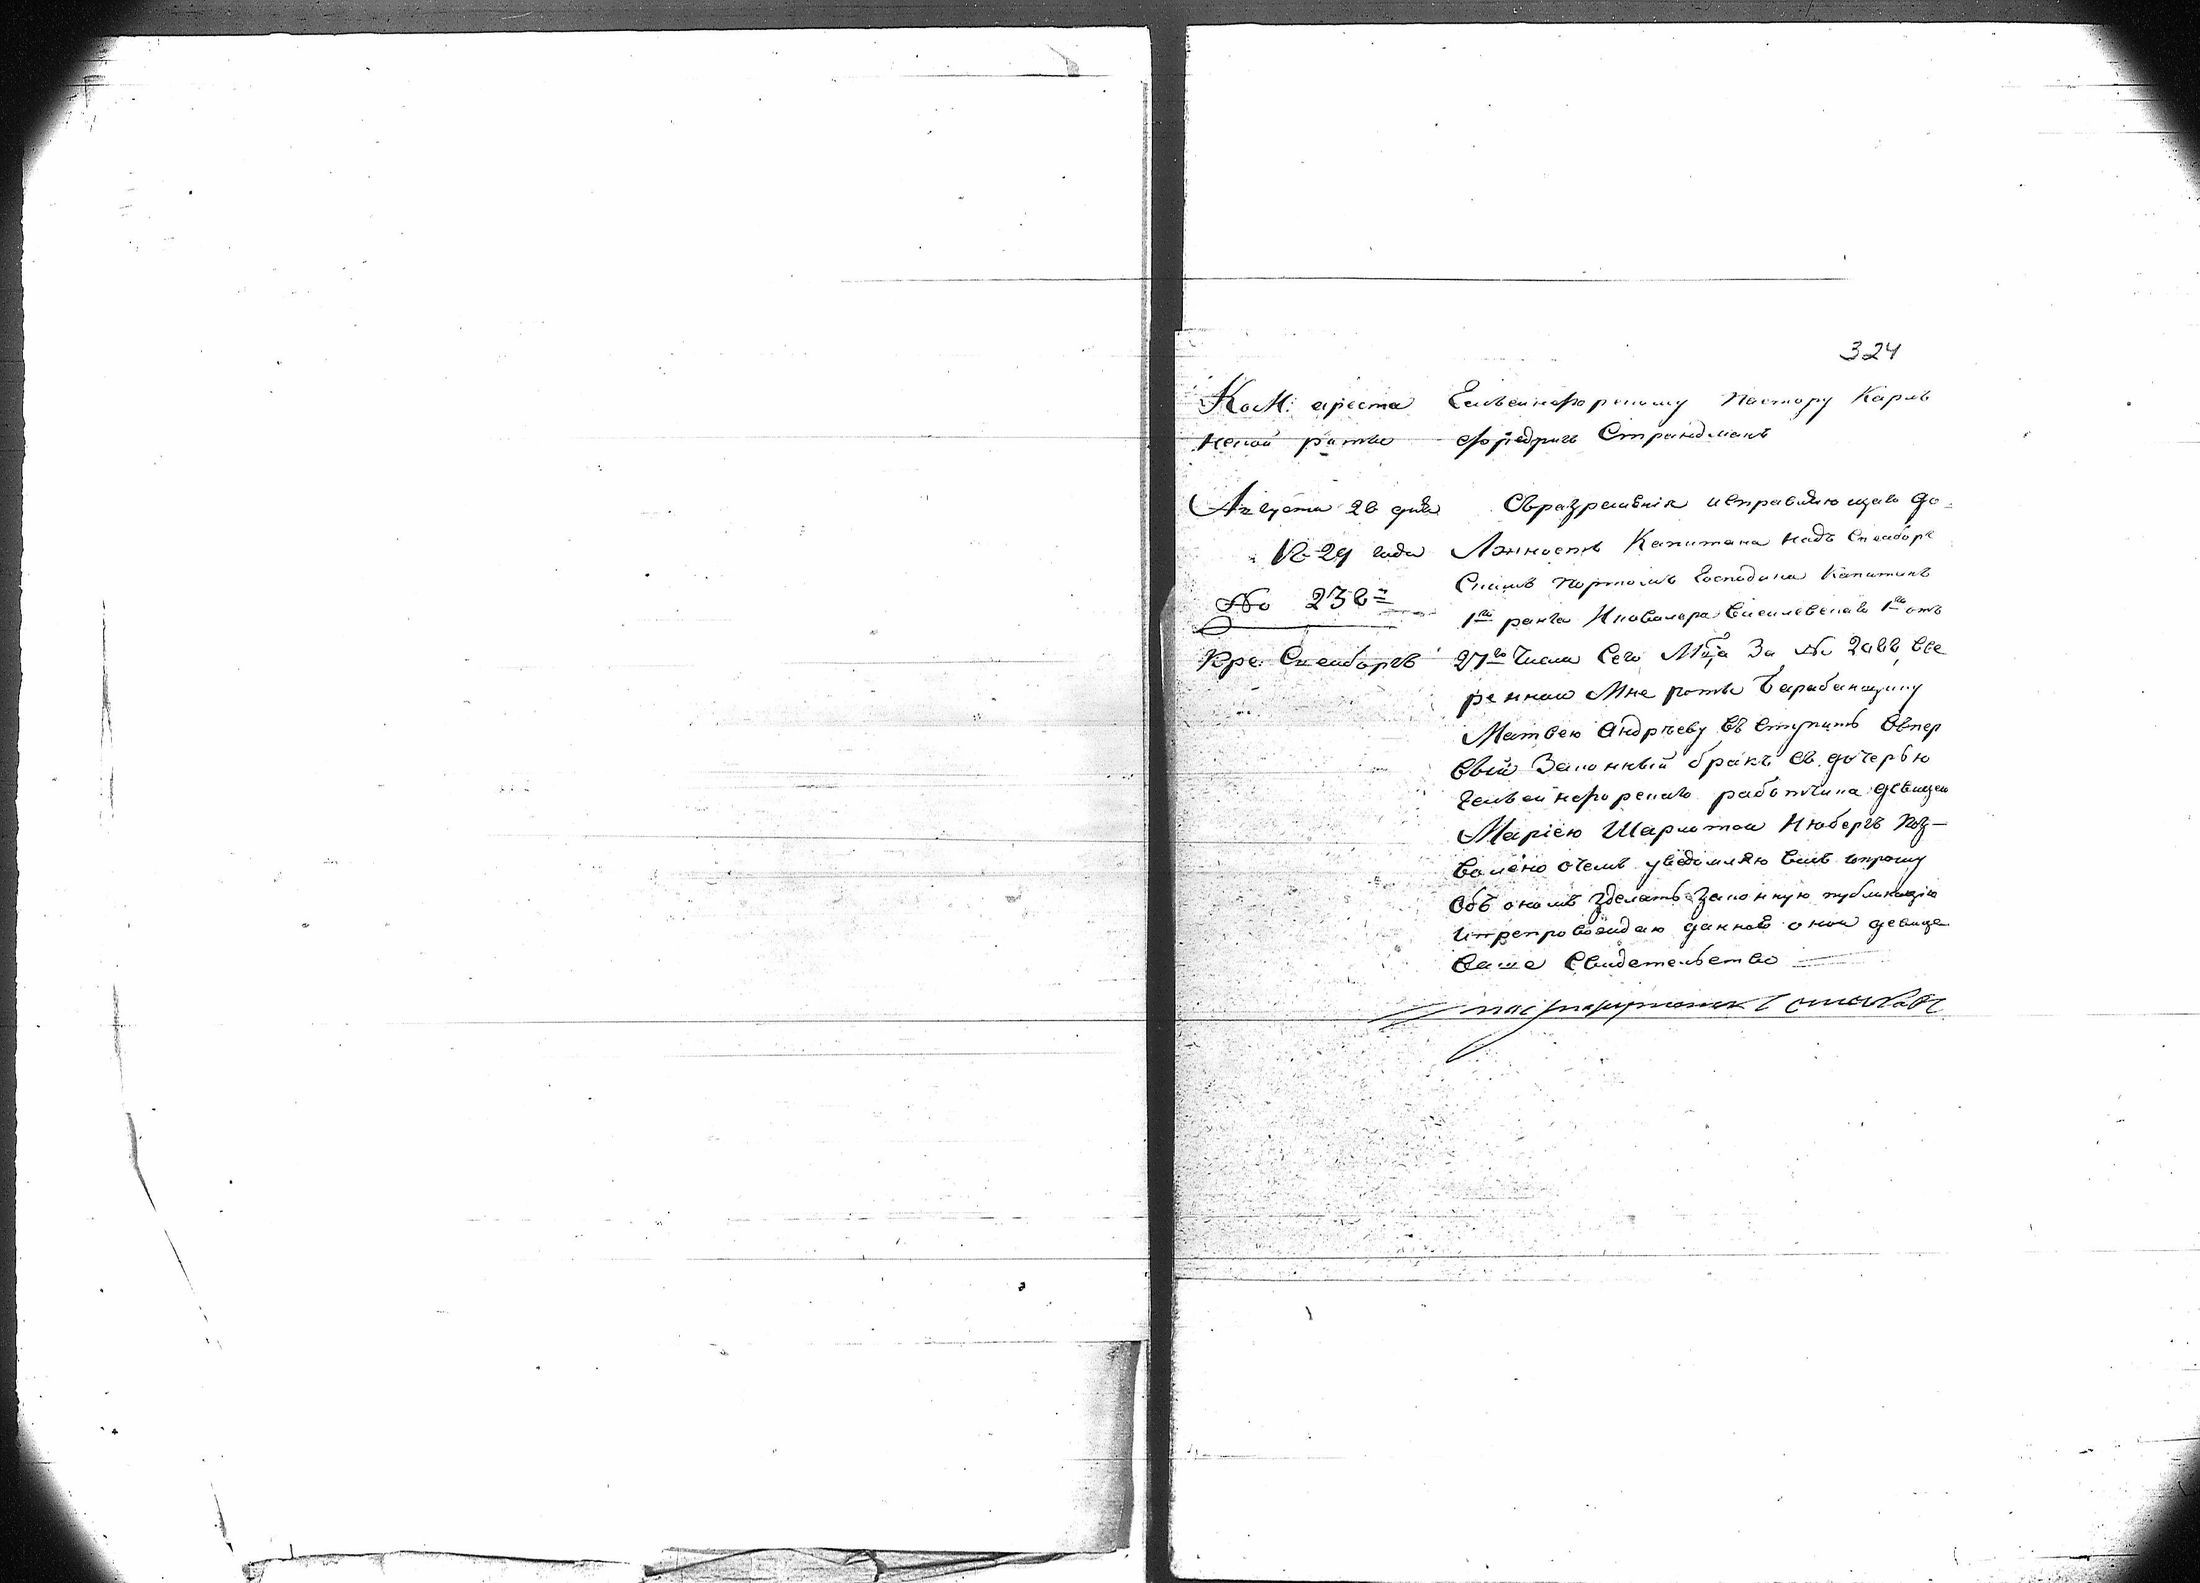 324
Ком: ареста
нской роты
Августа 28 дня
1829 года
№ 232
Кре. Свеаборгъ
Гельсенефорскому Пастору Карлъ
Фредригъ Страндманъ
Съразрешенiя исправляющаго до-
Лжность Капитана надъ Свеаборг
Скимъ портомъ Господина Капитанъ
1го ранга Икавалера 1го отъ
27го Числа Сего Мца За № вве
ренной Мне роты барабанщику
Матвею Андрѣеву въ ступить Впер
Вый Законный бракъ Съ дочерью
Гельсенефорскаго работника девицею
Марiею Шарлотой Нюбергъ поз-
Волено очемъ уведомляю Васъ ипрошу
Объ ономъ зделать законную публикацiю
Ипрепровождаю данное оной девице
Ваше Свидетельство